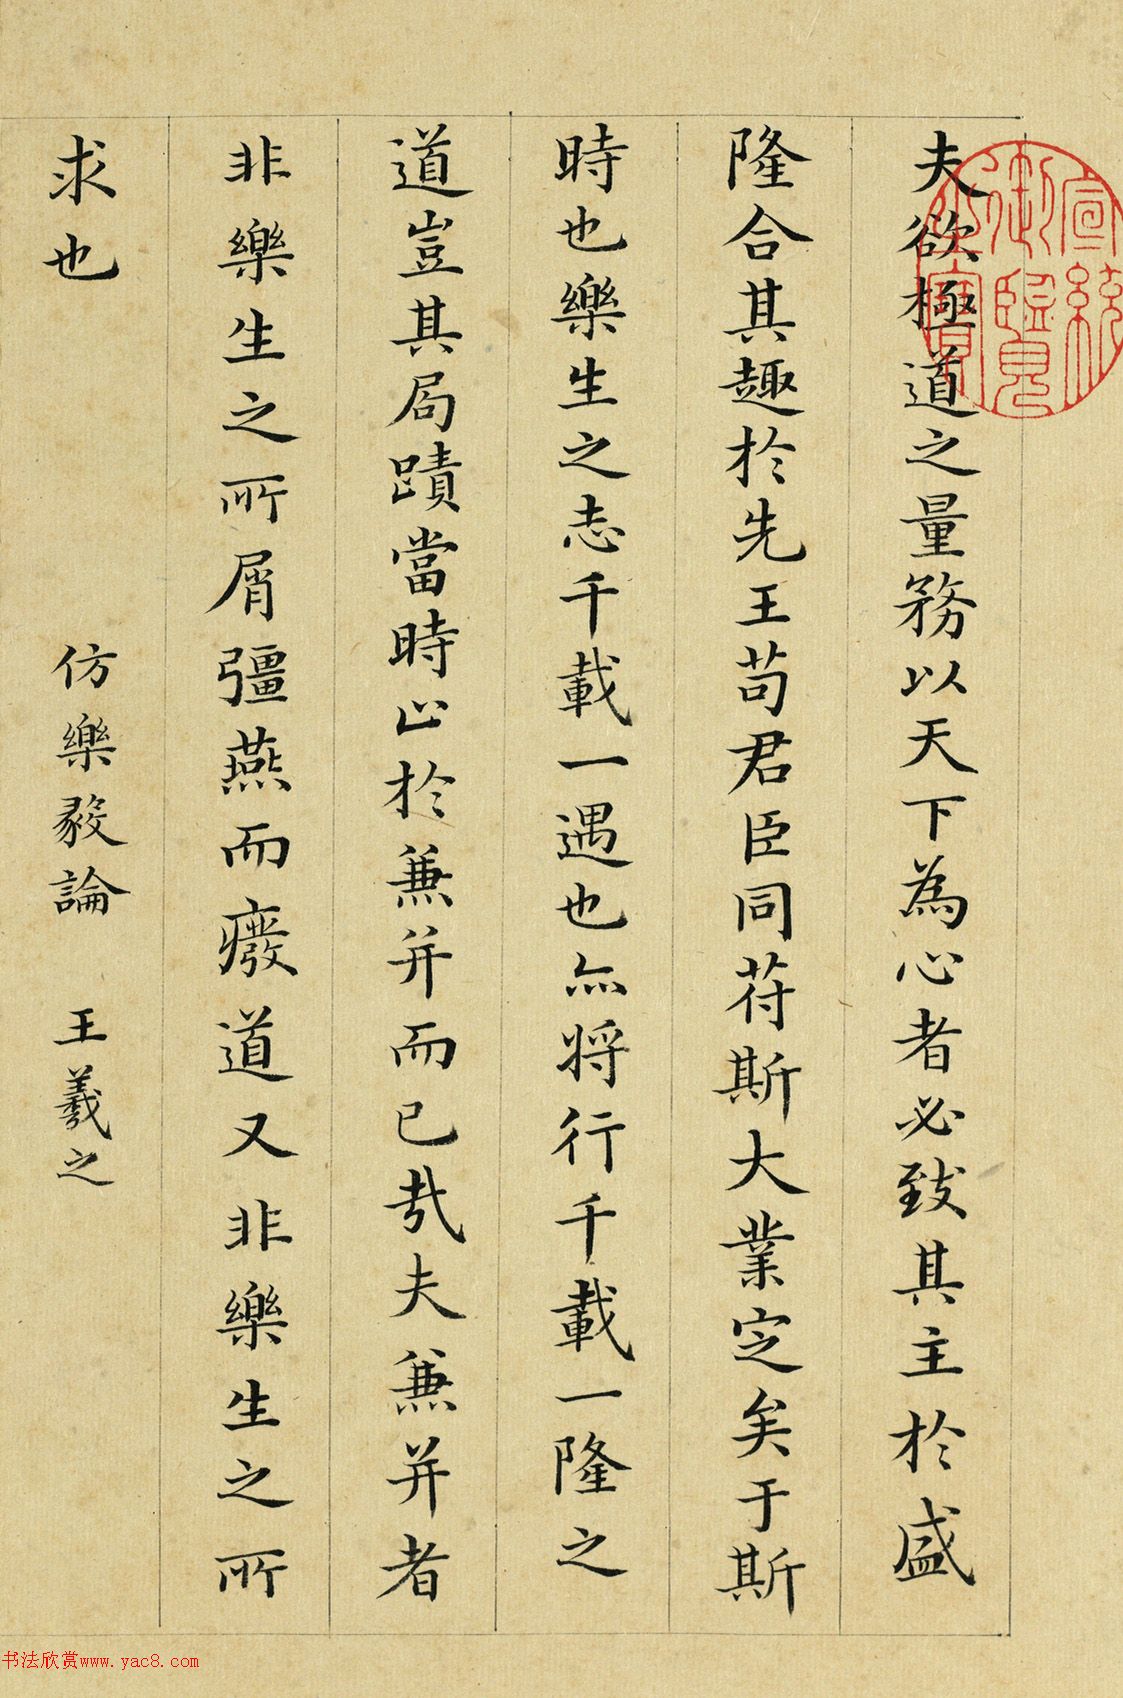 夫欲極道之量務以天下為心者必致其主於盛
隆合其趣於先王苟君臣同苻斯大業定矣于斯
時也樂生之志千載一遇也亦將行千載一隆之
道豈其局蹟當時止於兼并而已哉夫兼并者
非樂生之所屑彊燕而癈道又非樂生之所
求也
仿樂毅論 王羲之
宣統御覽之寶
书法欣赏www.yac8.com